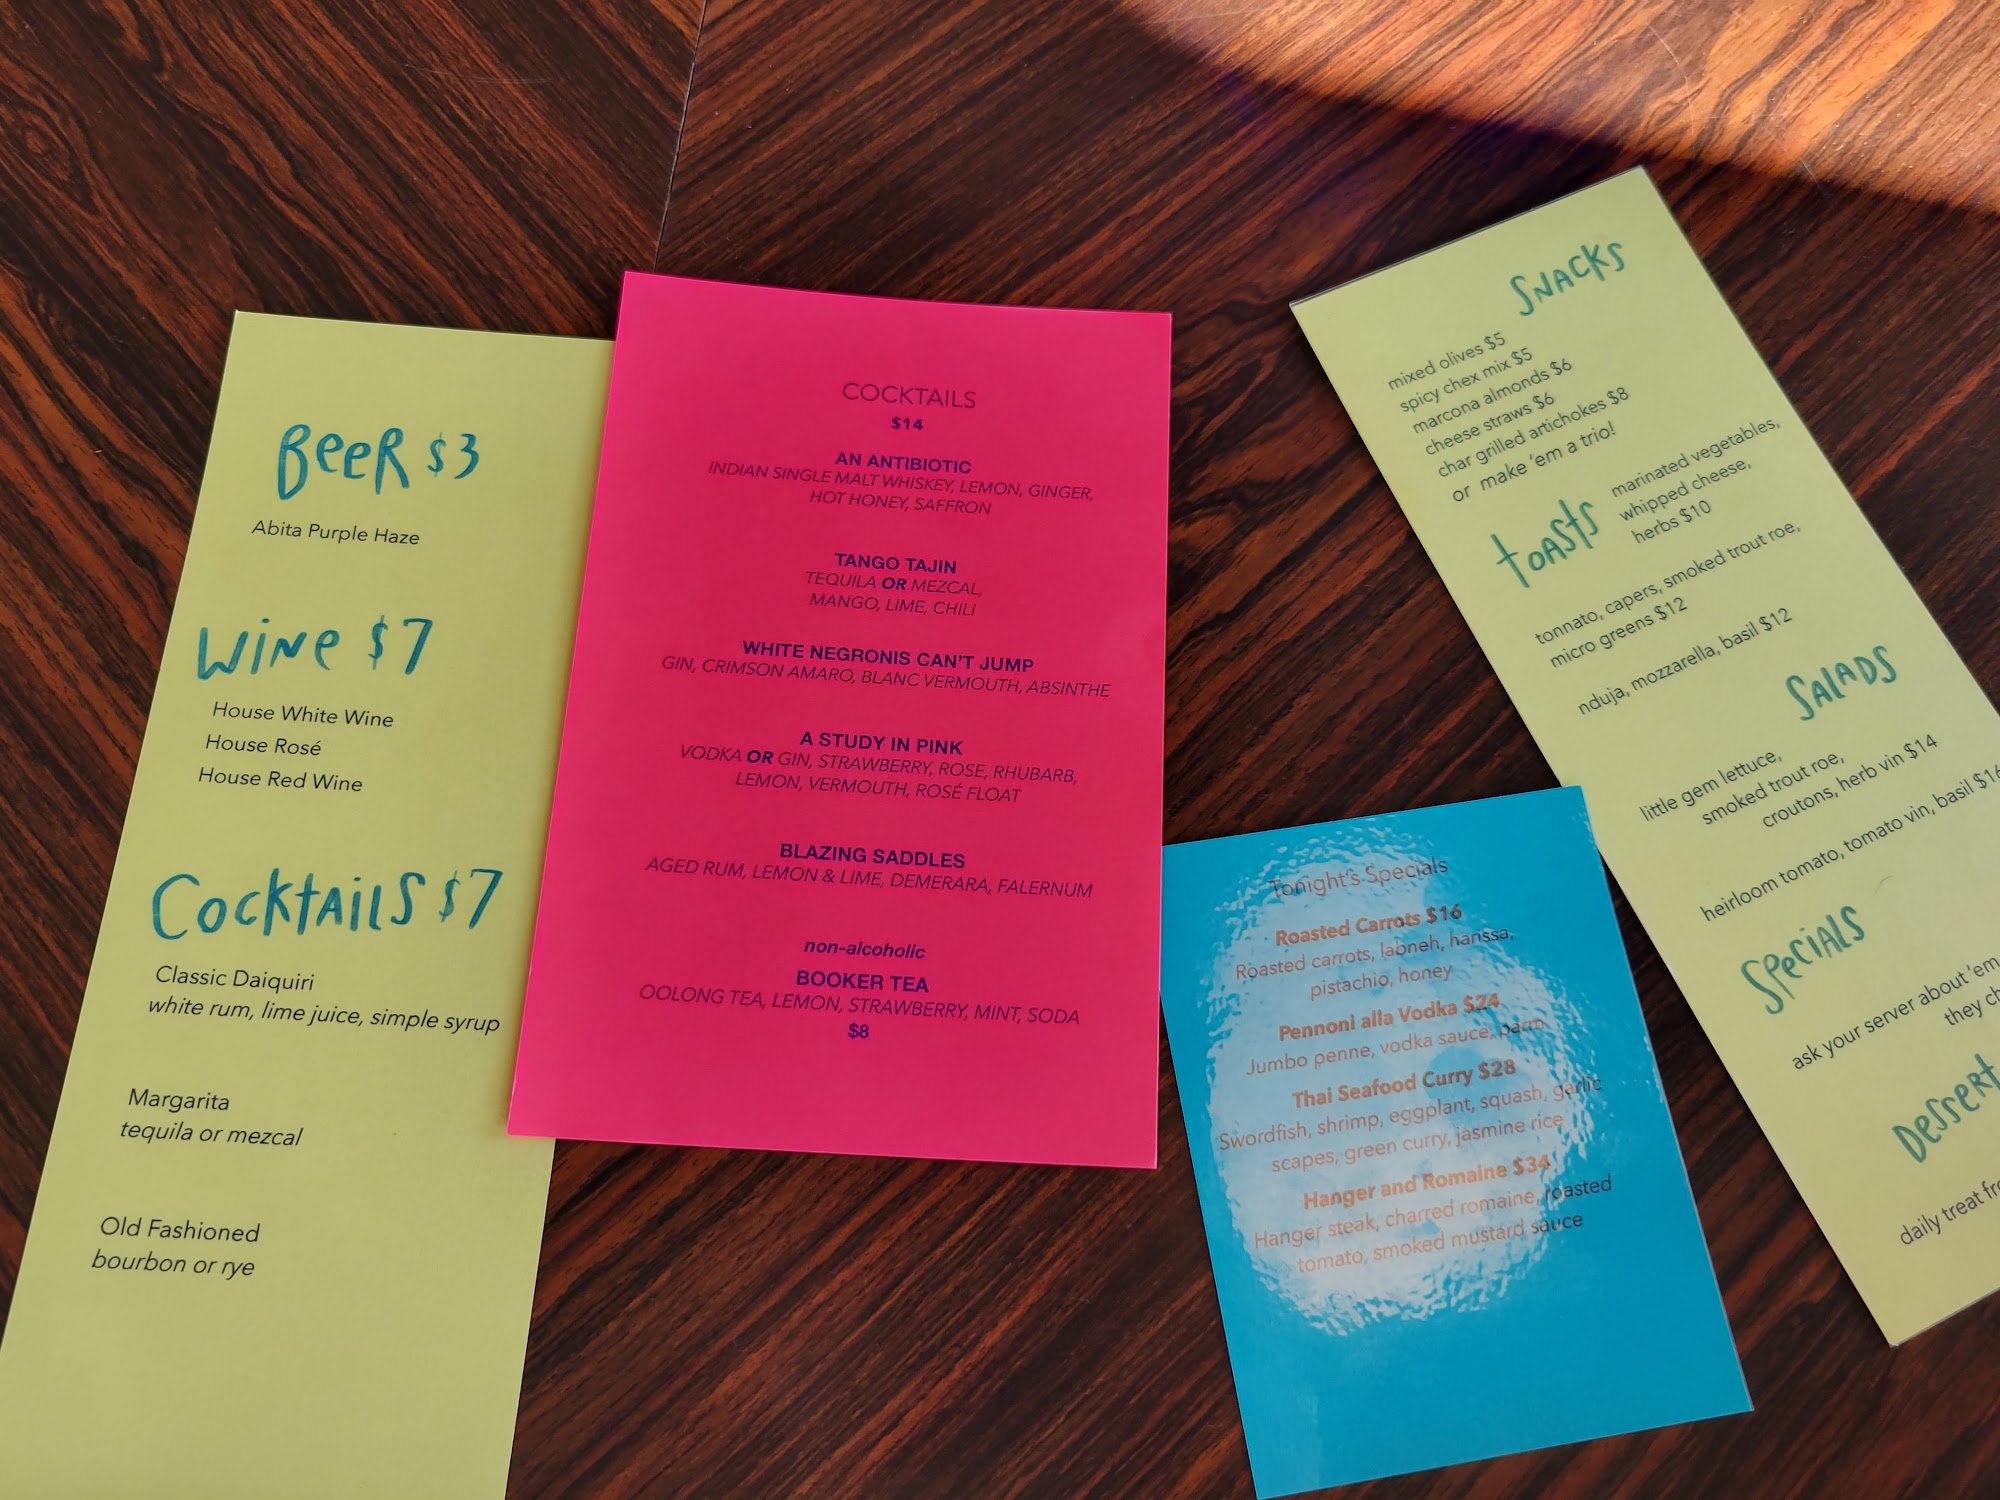 Beer $3
Abita Purple Haze
Wine $7
House White Wine
House Rosé
House Red Wine
Cocktails $7
Classic Daiquiri
white rum, lime juice, simple syrup
Margarita
tequila or mezcal
Old Fashioned
bourbon or rye
COCKTAILS
$14
AN ANTIBIOTIC
INDIAN SINGLE MALT WHISKEY, LEMON, GINGER,
HOT HONEY, SAFFRON
TANGO TAJIN
TEQUILA OR MEZCAL,
MANGO, LIME, CHILI
WHITE NEGRONIS CAN'T JUMP
GIN, CRIMSON AMARO, BLANC VERMOUTH, ABSINTHE
A STUDY IN PINK
VODKA OR GIN, STRAWBERRY, ROSE, RHUBARB,
LEMON, VERMOUTH, ROSÉ FLOAT
BLAZING SADDLES
AGED RUM, LEMON & LIME, DEMERARA, FALERNUM
non-alcoholic
BOOKER TEA
OOLONG TEA, LEMON, STRAWBERRY, MINT, SODA
$8
Tonight's Specials
Roasted Carrots $16
Roasted carrots, labneh, harissa,
pistachio, honey
Pennoni alla Vodka $24
Jumbo penne, vodka sauce, parm
Thai Seafood Curry $28
Swordfish, shrimp, eggplant, squash, garlic
scapes, green curry, jasmine rice
Hanger and Romaine $34
Hanger steak, charred romaine, roasted
tomato, smoked mustard sauce
Snacks
mixed olives $5
spicy chex mix $5
marcona almonds $6
cheese straws $6
char grilled artichokes $8
or make 'em a trio!
Toasts
marinated vegetables,
whipped cheese,
herbs $10
tonnato, capers, smoked trout roe,
micro greens $12
nduja, mozzarella, basil $12
Salads
little gem lettuce,
smoked trout roe,
croutons, herb vin $14
heirloom tomato, tomato vin, basil $16
Specials
ask your server about 'em
they
Dessert
daily treat